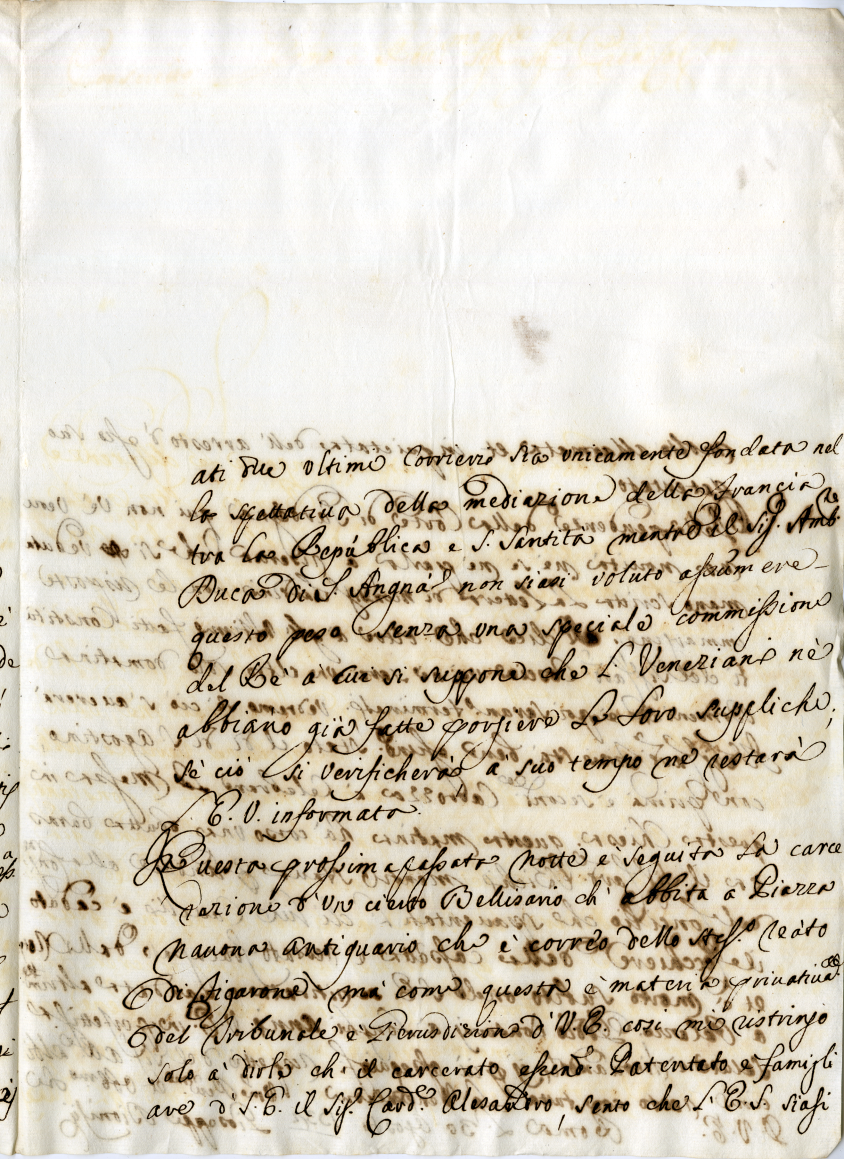 ati due ultimi Corrieri sia unicamente fondata nel
la spettativa della mediazione della Francia
tra la Republica e S. Santità mentre il Sig.r Amb.re
Duca di S. Angnà non siasi voluto assumere
questo peso senza una speciale commissione
del Rè à cui si suppone che L. Veneziani nè
abbiano già fatte porgiere Le Loro suppliche;
sè ciò si verificherà, a suo tempo ne restarà
L. E. V. informata.
Questa prossima passata notte è seguita La carce
razione d'un cierto Bellisario ch' abbita a Piazza
Navona Antiquario che è correo dello stess.o reàto
di Figarone, mà come questa è materia privativa
del Tribunale e Gierusdizione d'V. E. così mi ristringo
solo à dirle ch' il carcerato essend.o Patentato e famigli
are d' S. E. il Sig.r Card.e Alesandro, sento che L. E. S. siasi